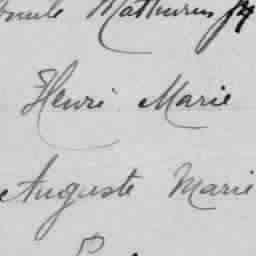 Mathurin
Henri Marie
Auguste Marie